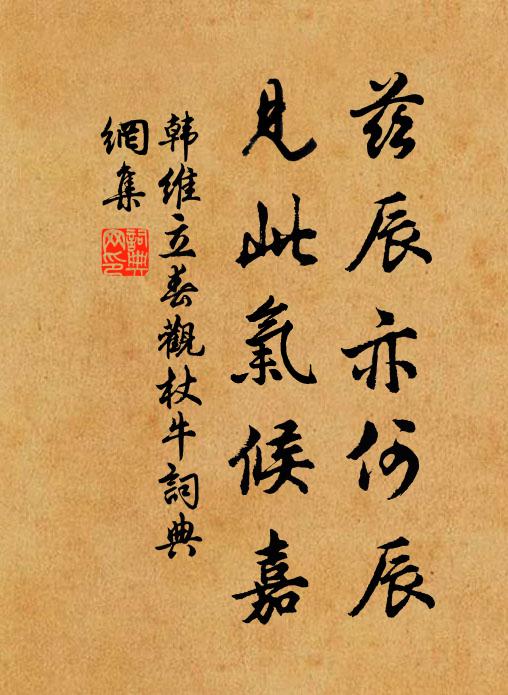 茲辰亦何辰
見此氣候嘉
韩維立春觀杖牛詞典
網集
詞典网印